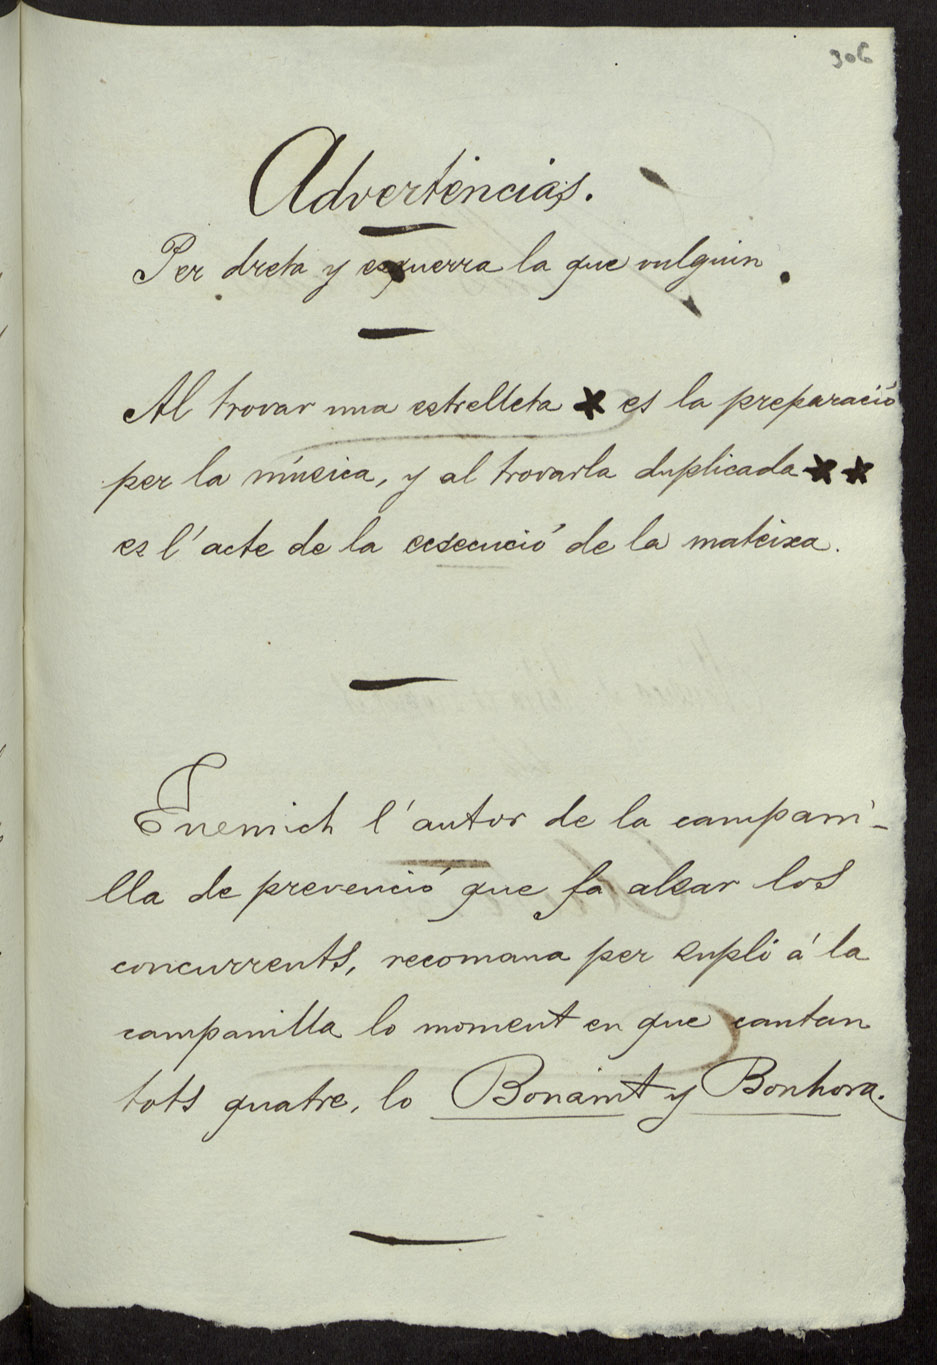 306
Advertencias.
Per dreta y esquerra la que vulguin.
Al trovar una estrelleta * es la preparació
per la música, y al trovarla duplicada * *
es l'acte de la ecsecució de la mateixa.
Enemich l'autor de la campani-
lla de prevenció que fa alsar los
concurrents, recomana per supli á la
campanilla lo moment en que cantan
tots quatre, lo Bonanit y Bonhora.